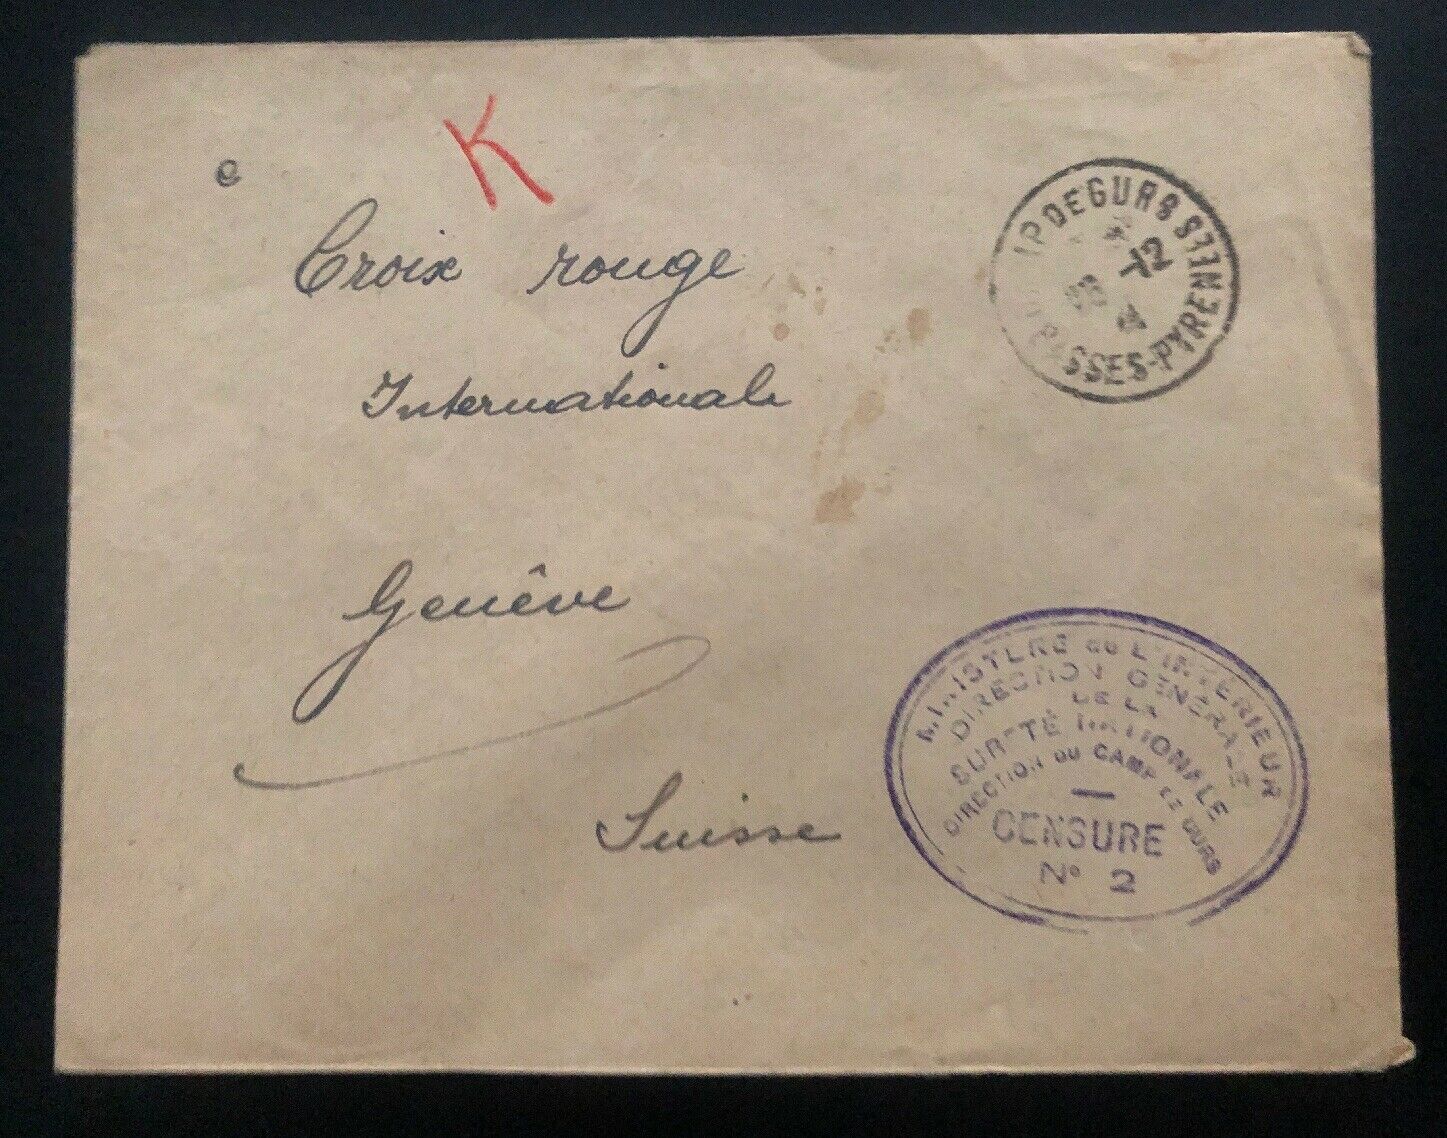 K
e
Croix rouge
Internationale
Genêve
Suisse
MP DE GURS
BASSES-PYRENEES
-12
MINISTERE de L'INTERIEUR
DIRECTION GÉNÉRALE
DE LA
SURETÉ NATIONALE
DIRECTION DU CAMP DE GURS
CENSURE
No 2